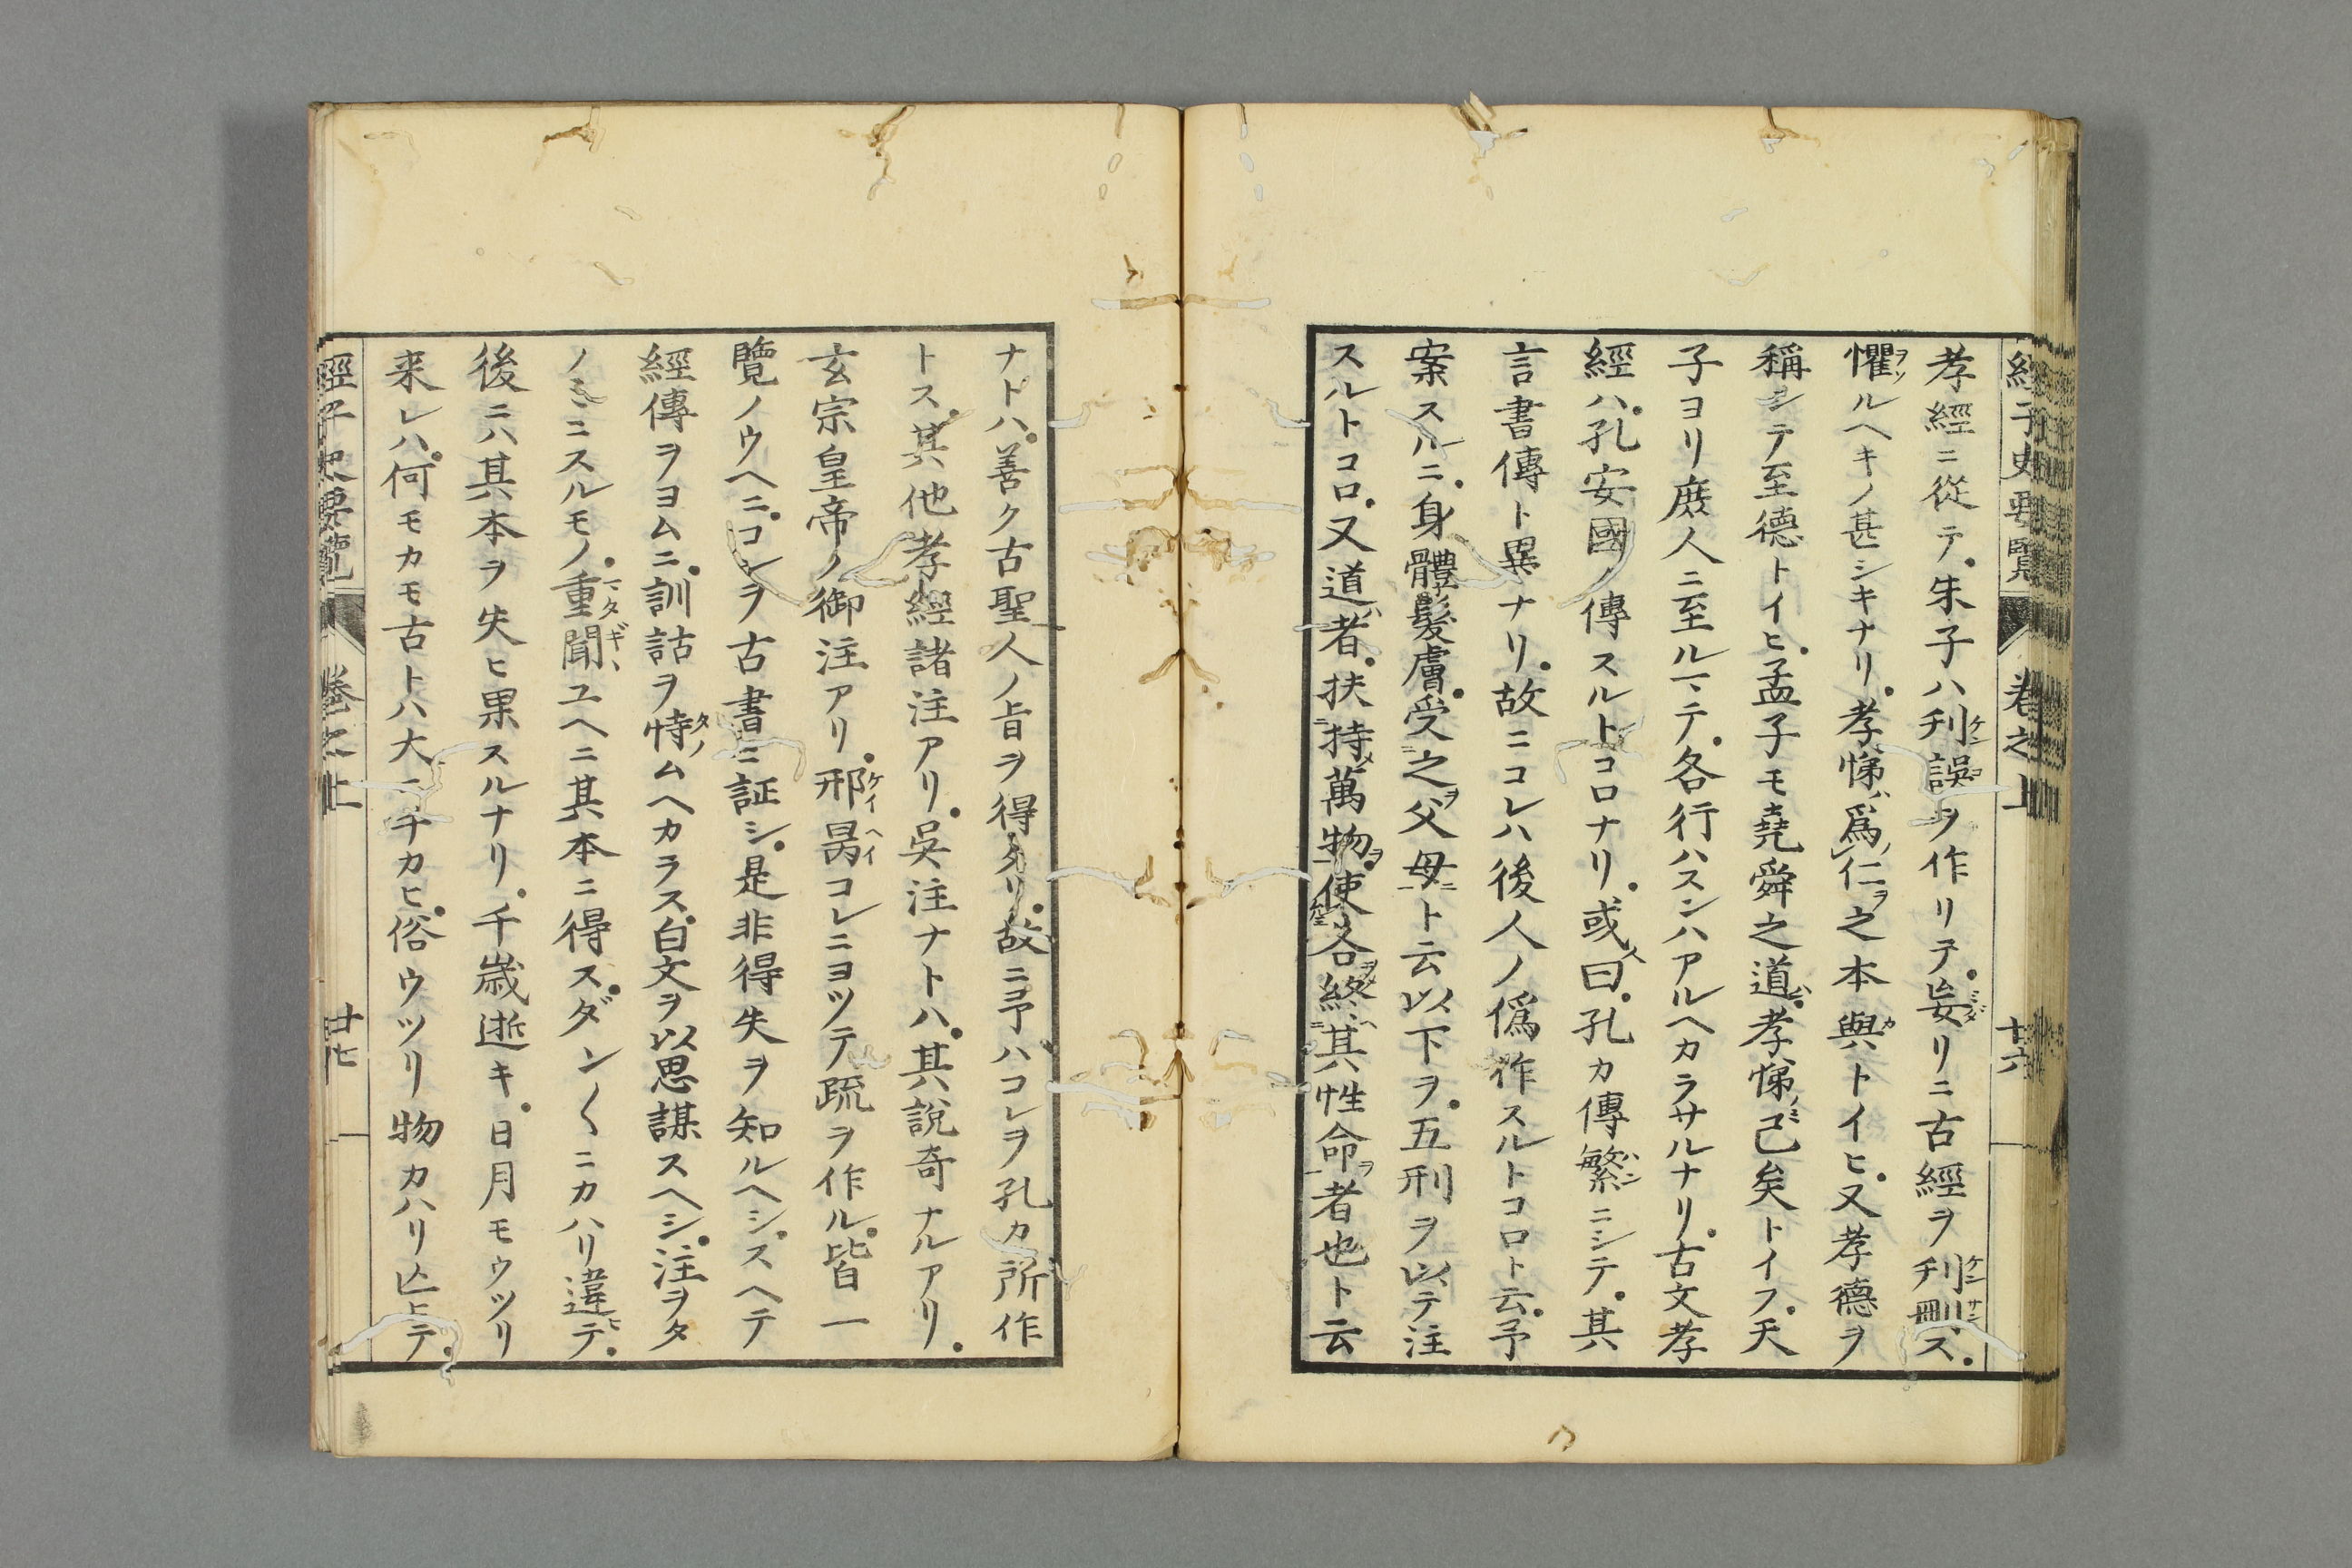 經子史要覽　卷之上　十六
孝經ニ從テ。朱子ハ刋誤ヲ作リテ。妄リニ古經ヲ刋刪ス。
懼ルヘキノ甚シキナリ。孝悌爲仁之本與トイヒ。又孝德ヲ
稱シテ至德トイヒ。孟子モ堯舜之道。孝悌已矣トイフ。天
子ヨリ庶人ニ至ルマテ。各行ハスンハアルヘカラサルナリ。古文孝
經ハ。孔安國ノ傳スルトコロナリ。或曰。孔カ傳繁ニシテ。其
言書傳ト異ナリ。故ニコレハ後人ノ僞作スルトコロト云。予
案スルニ。身體髮膚。受之父母ト云以下ヲ。五刑ヲ以テ注
スルトコロ。又道者。扶持萬物。使各終其性命者也ト云
ナトハ。善ク古聖人ノ旨ヲ得タリ。故ニ予ハコレヲ孔カ所作
トス。其他孝經諸注アリ。吳注ナトハ。其說奇ナルアリ。
玄宗皇帝ノ御注アリ。邢昺コレニヨツテ疏ヲ作ル。皆一
覽ノウヘニ。コレヲ古書ニ証シ。是非得失ヲ知ルヘシ。スヘテ
經傳ヲヨムニ。訓詁ヲ恃ムヘカラス。白文ヲ以思謀スヘシ。注ヲタ
ノミニスルモノ。重聞ユヘニ其本ニ得ス。ダン〱ニカハリ違テ。
後ニハ其本ヲ失ヒ果スルナリ。千歲逝キ。日月モウツリ
来レハ。何モカモ古トハ大ニチカヒ。俗ウツリ物カハリ亾テ。
經子史要覽　卷之上　廿七